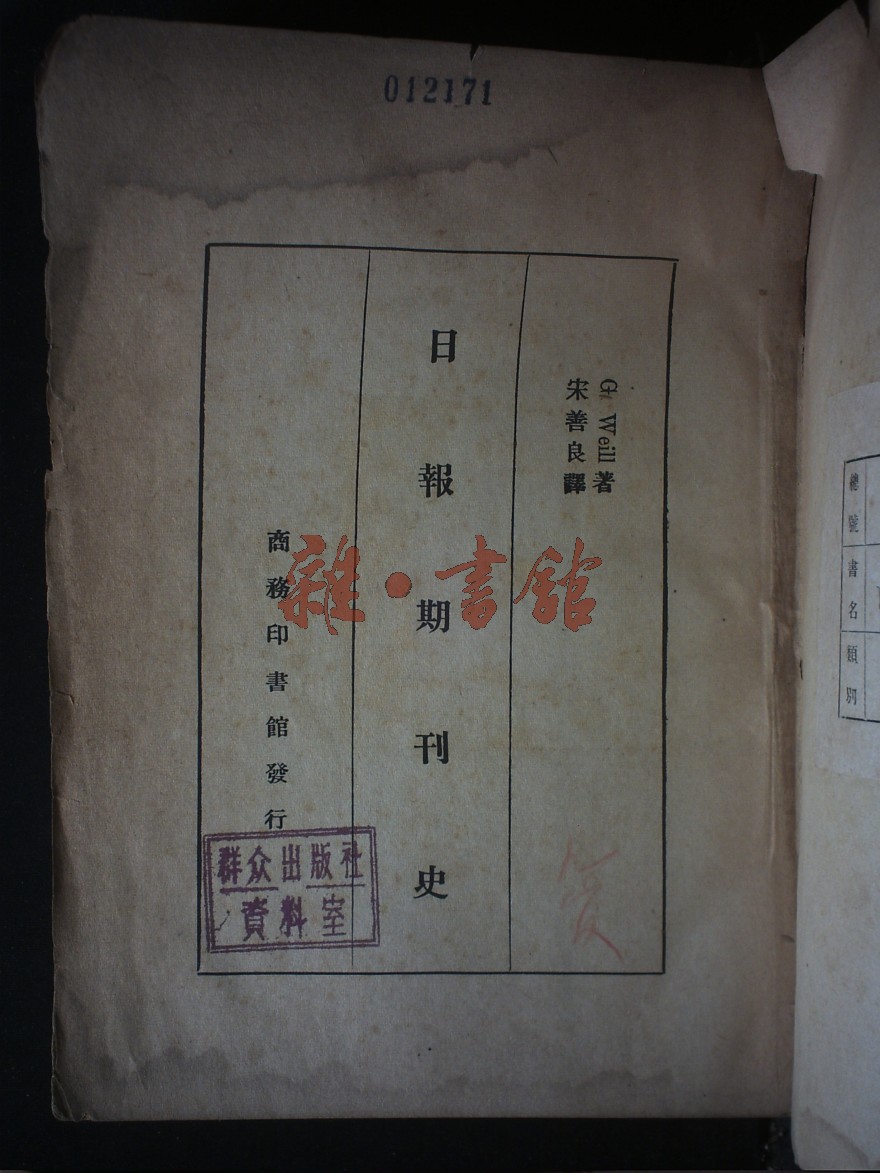 012171
G. Weill著
宋善良譯
日報期刊史
商務印書館發行
雜·書館
群众出版社
資料室
總號
書名
類別